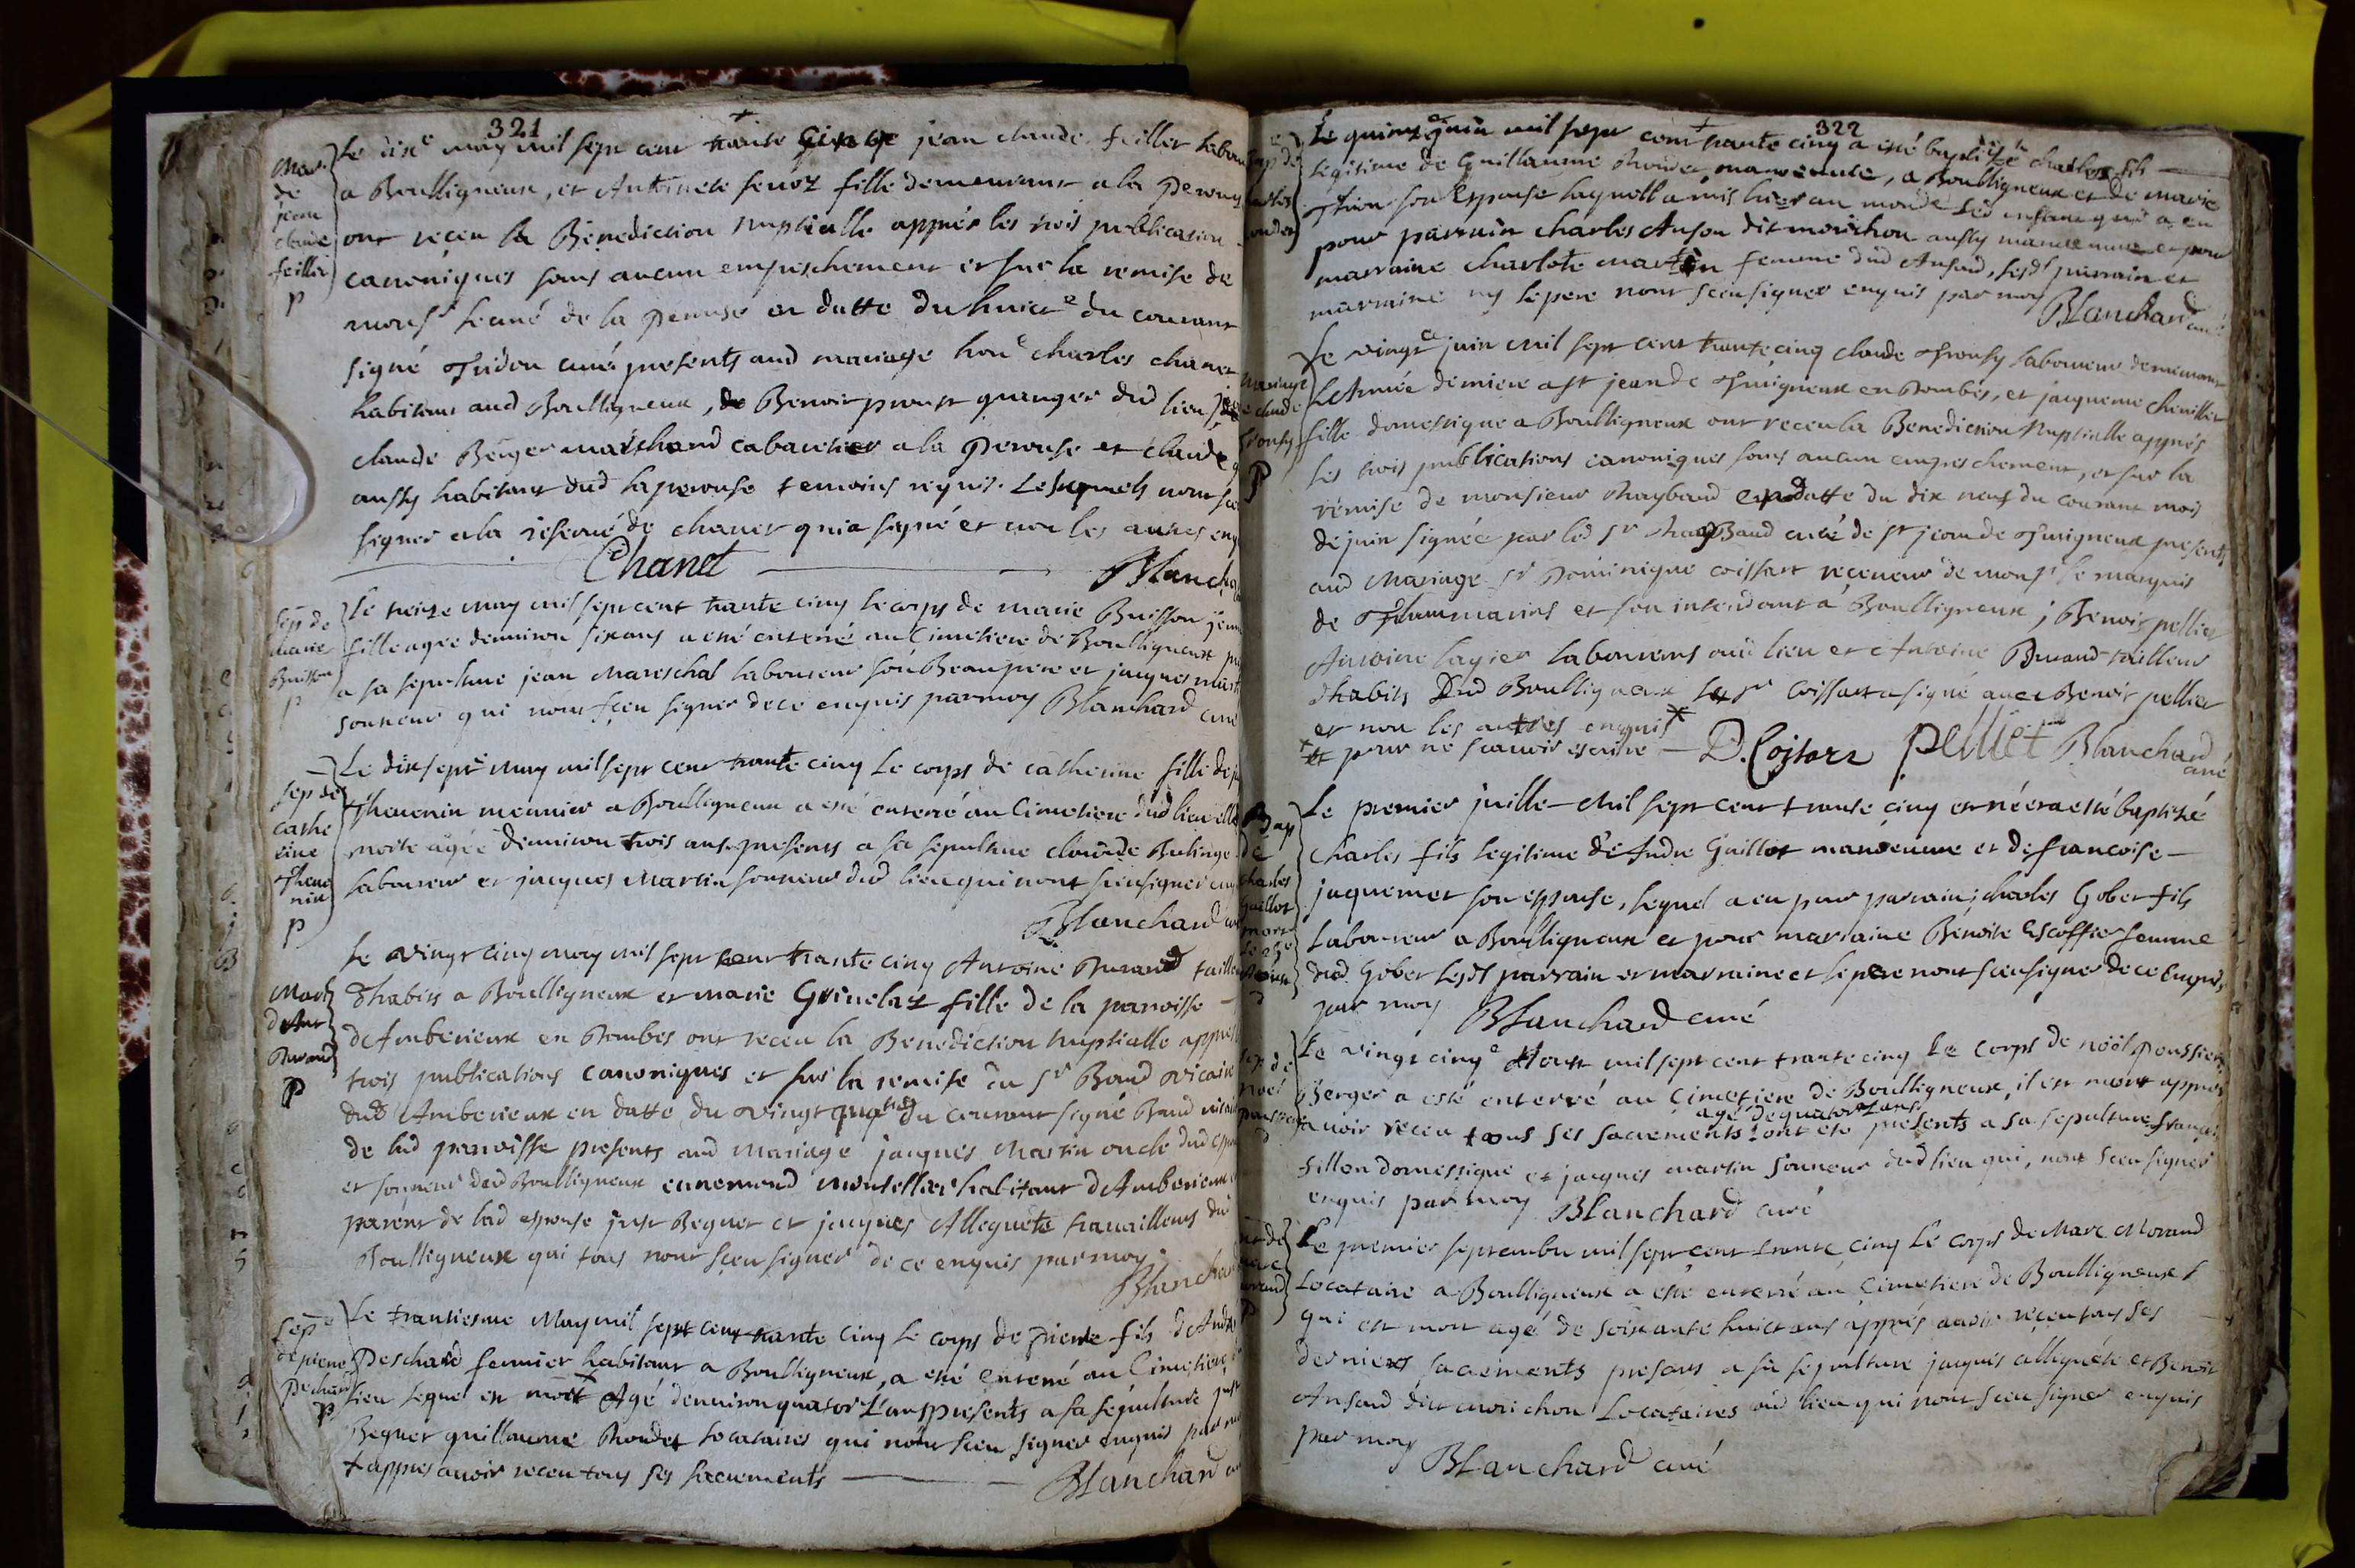 321
Mar.
de
jean
claude
feillet
p
Le dixe may mil sept cent trante cinq jean claude feillet labou
a Boulligneux, et Antoinete feuoz fille demeurant a la Perouse
ont receu la Benediction nuptialle apprés les trois publication
canoniques sans aucun empeschement et sur la remise de
monsr le curé de la Perouse en datte du huicte du courant
signé Tridon curé presents aud mariage honle charles chanet
habitant aud Boulligneux, Benoit granger dud lieu
claude Berger marchand cabaretier a la Perouse et claude
aussy habitant dud laperouse temoins requis. Lesquels nont sceu
signer a la reserue de chanet qui a signé et non les autres enq
Chanet Blanchard
sep de
marie
Buisson
p
Le treize may mil sept cent trante cinq le corps de marie Buisson jeune
fille agée denuiron six ans a esté enterré au Cimetiere de Boulligneux
a sa sepulture jean Mareschal laboureur son Beaupere et jacques mart
sonneur qui nont sceu signer de ce enquis par moy Blanchard curé
sep de
cathe
rine
Theue
nin
p
Le dixsept may mil sept cent trante cinq Le corps de catherine fille de j
Theuenin meunier a Boulligneux a esté enterré au Cimetiere dud lieu elle
morte agée denuiron trois ans presents a sa sepulture claude Bulinge
laboureur et jacques Martin sonneur dud lieu qui nont sceu signer enq
Blanchard curé
Mari
d Ant
Durand
P
Le vingt cinq may mil sept cent trante cinq Antoine Durand tailleur
dhabits a Boulligneux et marie Grinelaz fille de la paroisse
dAmberieux en Dombes ont receu la Benediction nuptialle apprés
trois publications canoniques et sur la remise du Sr Baud vicaire
dud Amberieux en datte du vingt quatre du courant signé Baud vicai
de lad paroisse presents aud mariage jacques Martin oncle dud espo
et sonneur dud Boulligneux ennemond montellier habitant dAmberieux
parent de lad espouse just Beguet et jacques Allegrete trauailleurs du
Boulligneux qui tous nont sceu signer de ce enquis par moy.
Blanchard
sepre
de pierre
Pechard
P
Le trantiesme May mil sept cent trante cinq le corps de Pierre fils dAndré
Deschard fermier habitant a Boulligneux, a esté enterré au Cimetiere
lieu lequel est mort + Agé denuiron quatorze ans presents a sa sepulture just
Beguet guillaume Rondet locataires qui nont sceu signer enquis par mo
+ appres auoir receu tous ses sacrements Blanchard cu
322
Le quinze juin mil sept cent trante cinq a esté baptizé charles fils
legitime de Guillaume Rondet manoeuure, a Boulligneux et de marie
son Espouse laquelle a mis hier au monde led enfant qui a eu
pour parrain charles Ansou dit morichou aussy manoeuure et pour
marraine charlote martin femme dud Ansoud, lesdt parrain et
marraine ny le pere nont sceu signer enquis par moy
Blanchard curé
Mariage
e claude
Tronsy
P
Le vingte juin mil sept cent trante cinq claude Tronsy laboureur demeurant
Lannée derniere a St jean de Thurigneux en Dombes, et jacqueme cheuillier
fille domestique a Boulligneux ont receu la Benediction Nuptialle apprés
les trois publications canoniques sans aucun empeschement, et sur la
remise de monsieur Raybaud en datte du dix neuf du courant mois
de juin signée par led sr Raybaud curé de st jean de Turigneux presents
aud Mariage Sr Dominique coissart receueur de monsr le marquis
de Flammarins et son intendant a Boulligneux; Benoit pellier
Antoine layier laboureurs aud lieu et Antoine Durand tailleur
dhabits Dud Boulligneux Le sr Coissart a signé auec Benoit pellier
et non les autres enquis +
+ et pour ne scauoir escrire — D. Coisart pelliet Blanchard curé
Bap
de
charles
guillot
Le premier juillet Mil sept cent trante cinq est né et a esté baptizé
Charles fils legitime dAndre Guillot manoeuure et de francoise
jaquemet son espouse, lequel a eu pour parrain; charles Gobet fils
Laboureur a Boulligneux et pour marraine Benoite Escoffier femme
dud. Gobet lesdt parrain et marraine et le pere nont sceu signer de ce Enquis,
par moy Blanchard curé
sep de
noel
Le vingt cinqe Aoust mil sept cent trante cinq Le Corps de nöel Poussier
Berger a esté enterré au Cimetiere de Boulligneux, il est mort apprés
agé de quatorze ans
auoir receu tous ses sacrements : ont été presents a sa sepulture francois
fillon domestique et jacques martin sonneur dud lieu qui, nont sceu signer
enquis par moy Blanchard curé
Le premier septembre mil sept cent trante cinq Le corps de Marc Morand
Locataire a Boulligneux a esté enterré au Cimetiere de Boulligneux
qui est mort agé de soixante huict ans apprés auoir receu tous ses
derniers sacrements presents a sa sepulture jacques allegrete et Benoit
Ansoud dit morichou Locataires aud lieu qui nont sceu signer enquis
par moy Blanchard curé